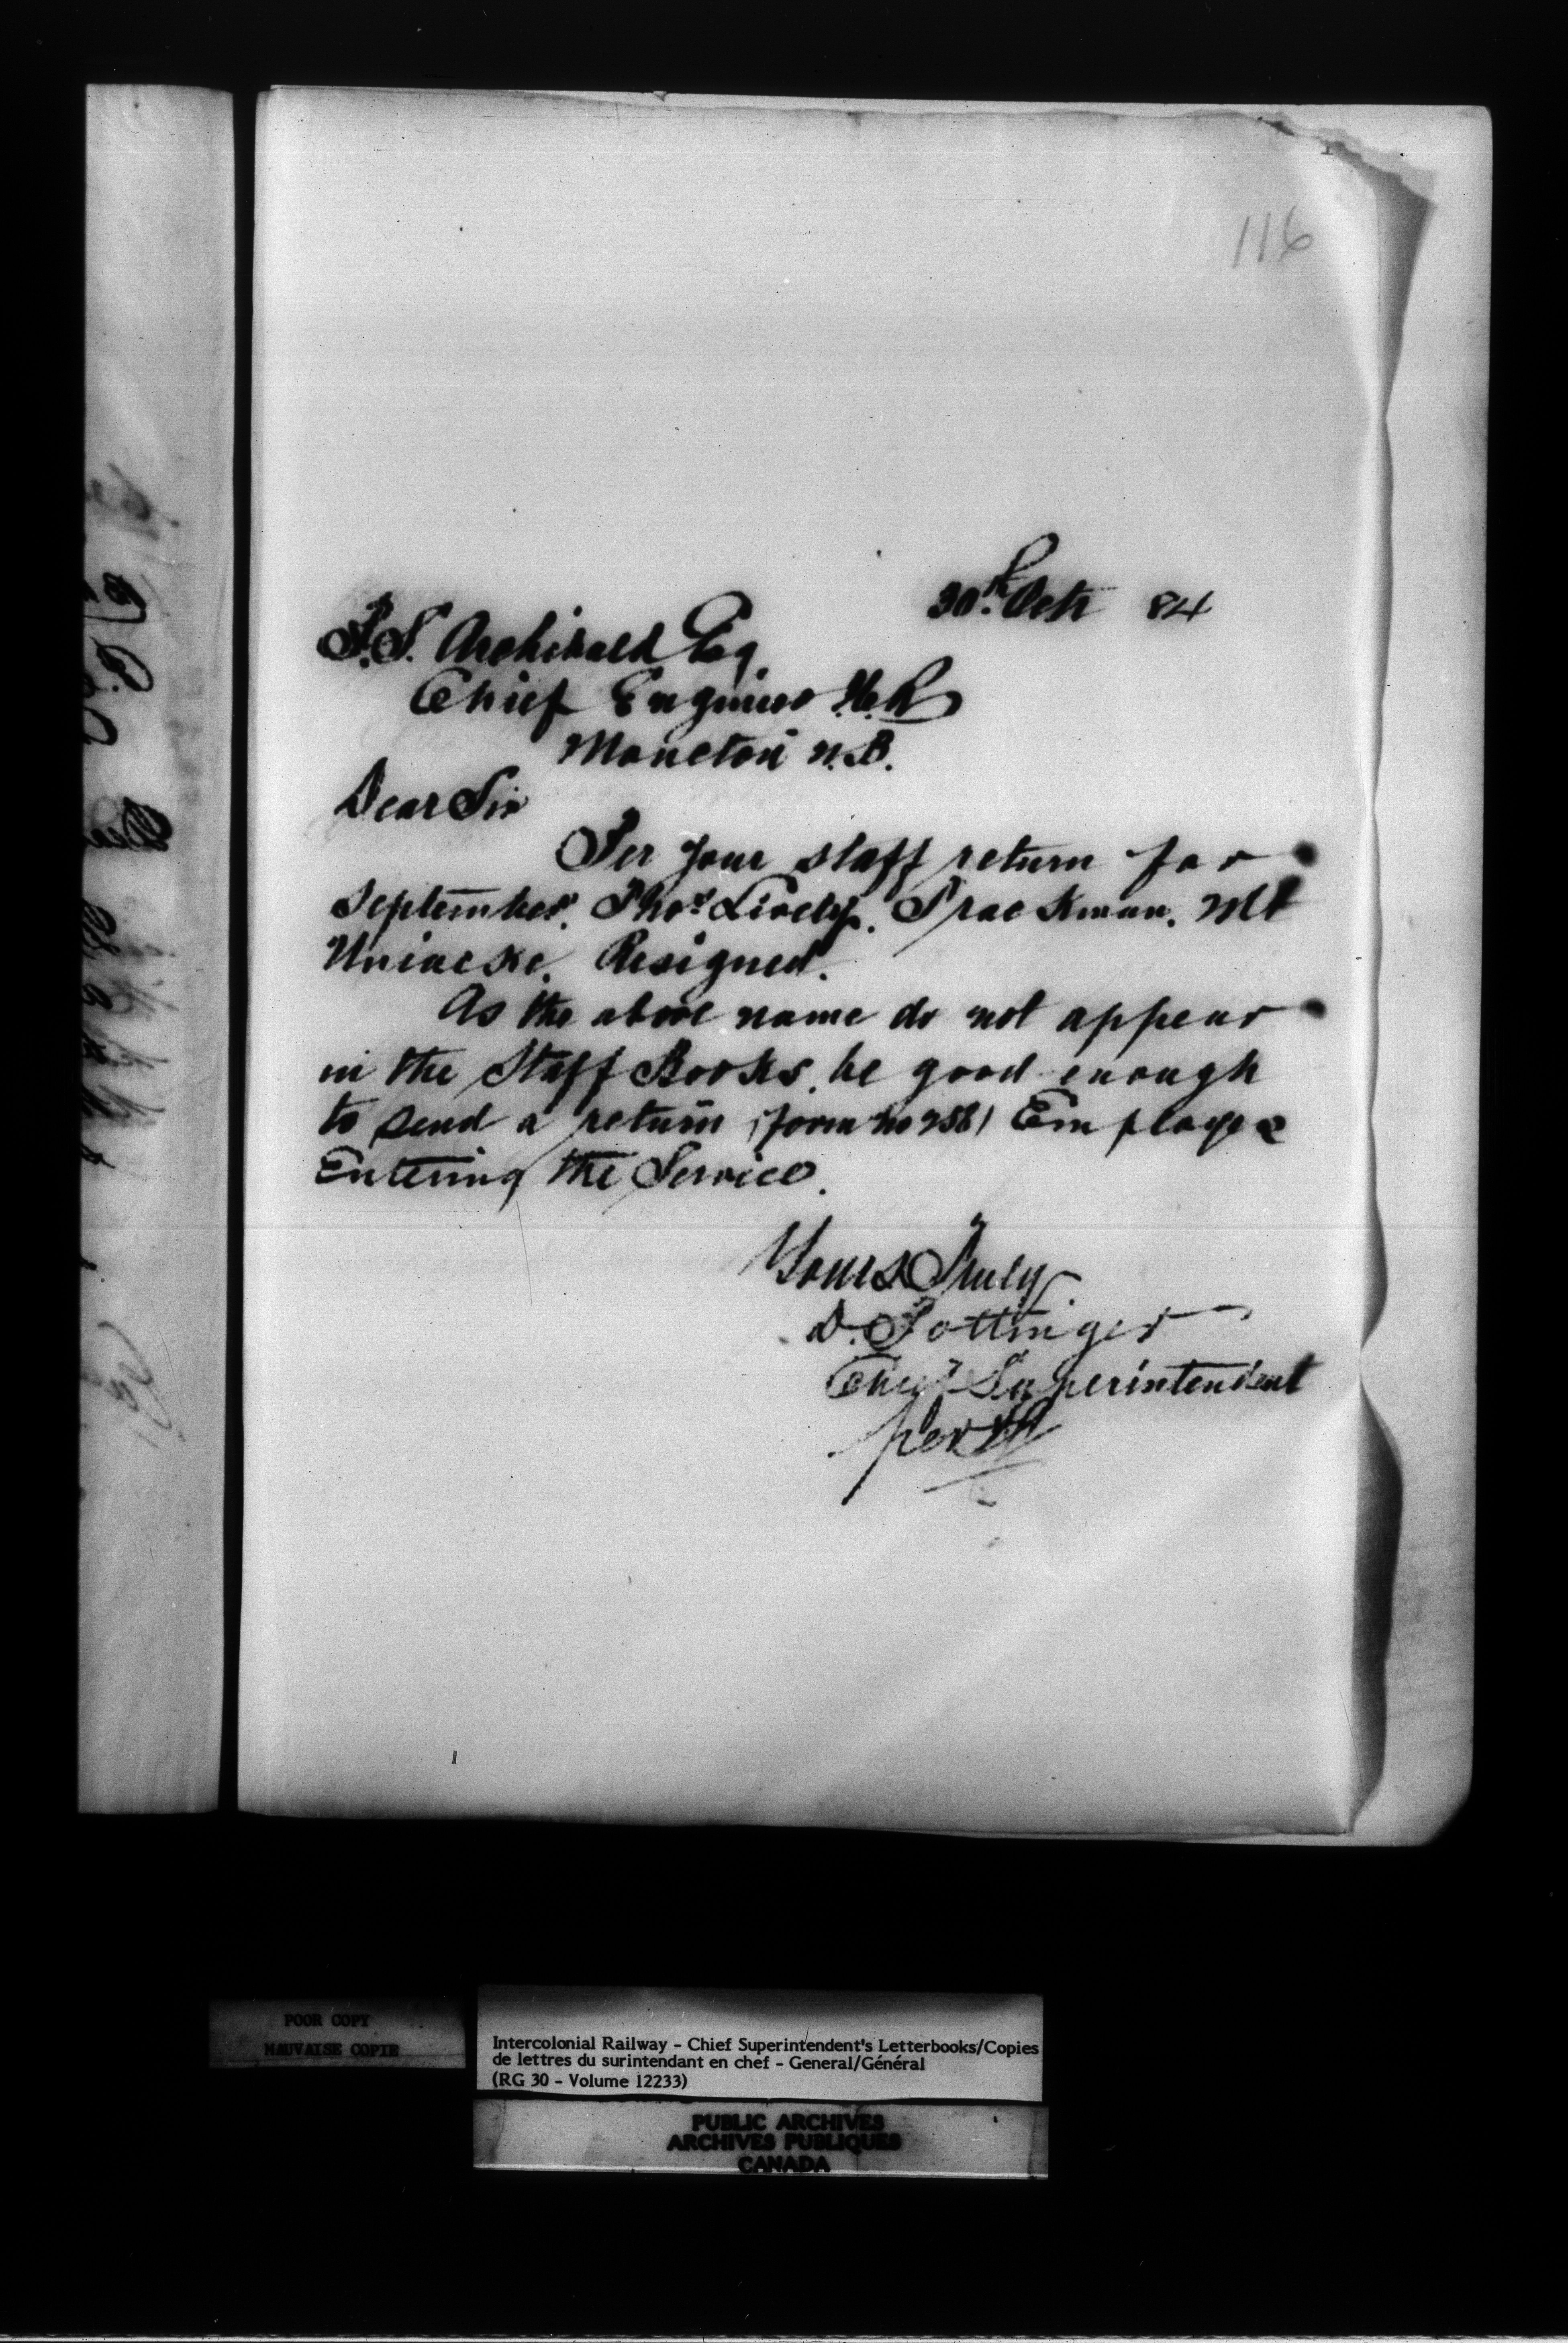 116
30th Octr 84
P.S. Archibald Esq
Chief Engineer I.C.R
Moncton N.B.
Dear Sir
Per your staff return for
September, Thos Lively. Trackman. Mt
Uniacke. Resigned.
As the above name do not appear
in the Staff Books, be good enough
to send a return (form no 258) Employee
Entering the Service.
Yours Truly
D. Pottinger
Chief Superintendent
per
POOR COPY
MAUVAISE COPIE
Intercolonial Railway - Chief Superintendent's Letterbooks/Copies
de lettres du surintendant en chef - General/Général
(RG 30 - Volume 12233)
PUBLIC ARCHIVES
ARCHIVES PUBLIQUES
CANADA